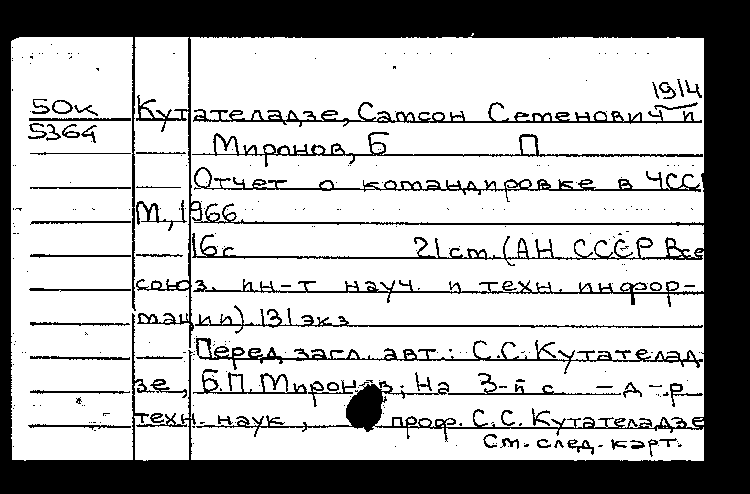 19/4
50к Кутателадзе, Самсон Семенович и
5364 Миронов, Б П
Отчет о командировке в ЧСС
М., 1966.
16с 21 см. (АН СССР Все
союз. ин-т науч. и техн. инфор-
мации). 131 экз
Перед загл. авт.: С.С. Кутателад
зе, Б.П. Миронов; На 3-й с - д-р
техн. наук, проф. С.С. Кутателадзе
См. след. карт.